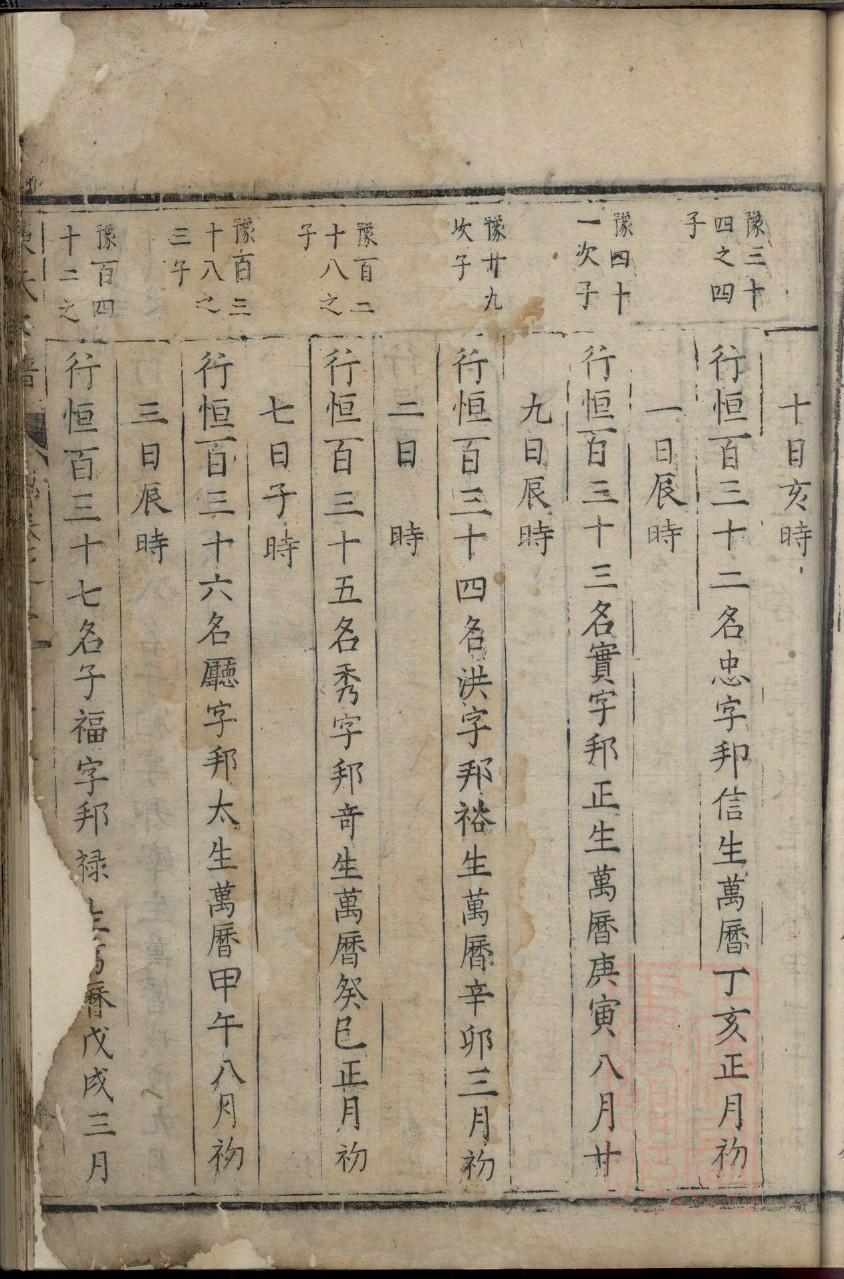 十日亥時
豫三十
四之四
子
行恒一百三十二名忠字邦信生萬曆丁亥正月初
一日辰時
豫四十
一次子
行恒一百三十三名實字邦正生萬曆庚寅八月廿
九日辰時
豫廿九
次子
行恒一百三十四名洪字邦裕生萬曆辛卯三月初
二日　時
豫百二
十八之
子
行恒一百三十五名秀字邦奇生萬曆癸巳正月初
七日子時
豫百三
十八之
三子
行恒一百三十六名廳字邦太生萬曆甲午八月初
三日辰時
豫百四
十二之
行恒一百三十七名子福字邦禄生萬曆戊戌三月